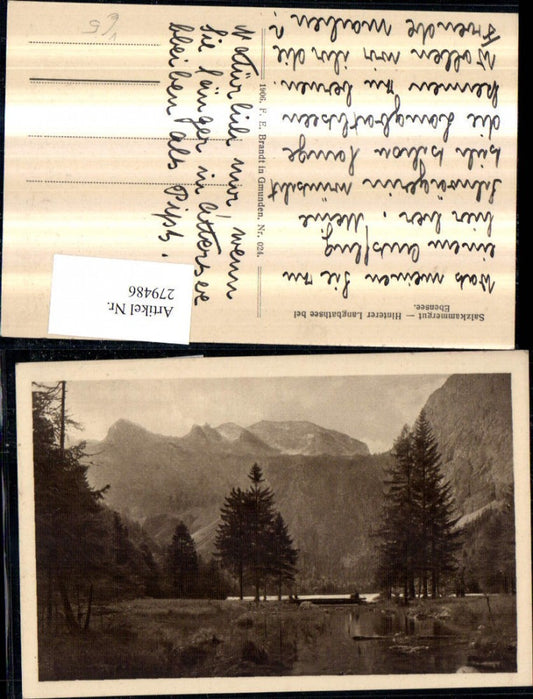 Salzkammergut — Hinterer Langbathsee bei
Ebensee.
Was meinen Sie zu
einem Ausflug
hier her. Meine
Schwägerin wünscht
sich schon lange
die Langbathseen
kennen zu lernen.
Wollen wir ihr die
Freude machen?
1906. F. E. Brandt in Gmunden. Nr. 024.
Natürlich nur, wenn
Sie länger in Attersee
bleiben als Pipsi.
65
Artikel Nr.
279486